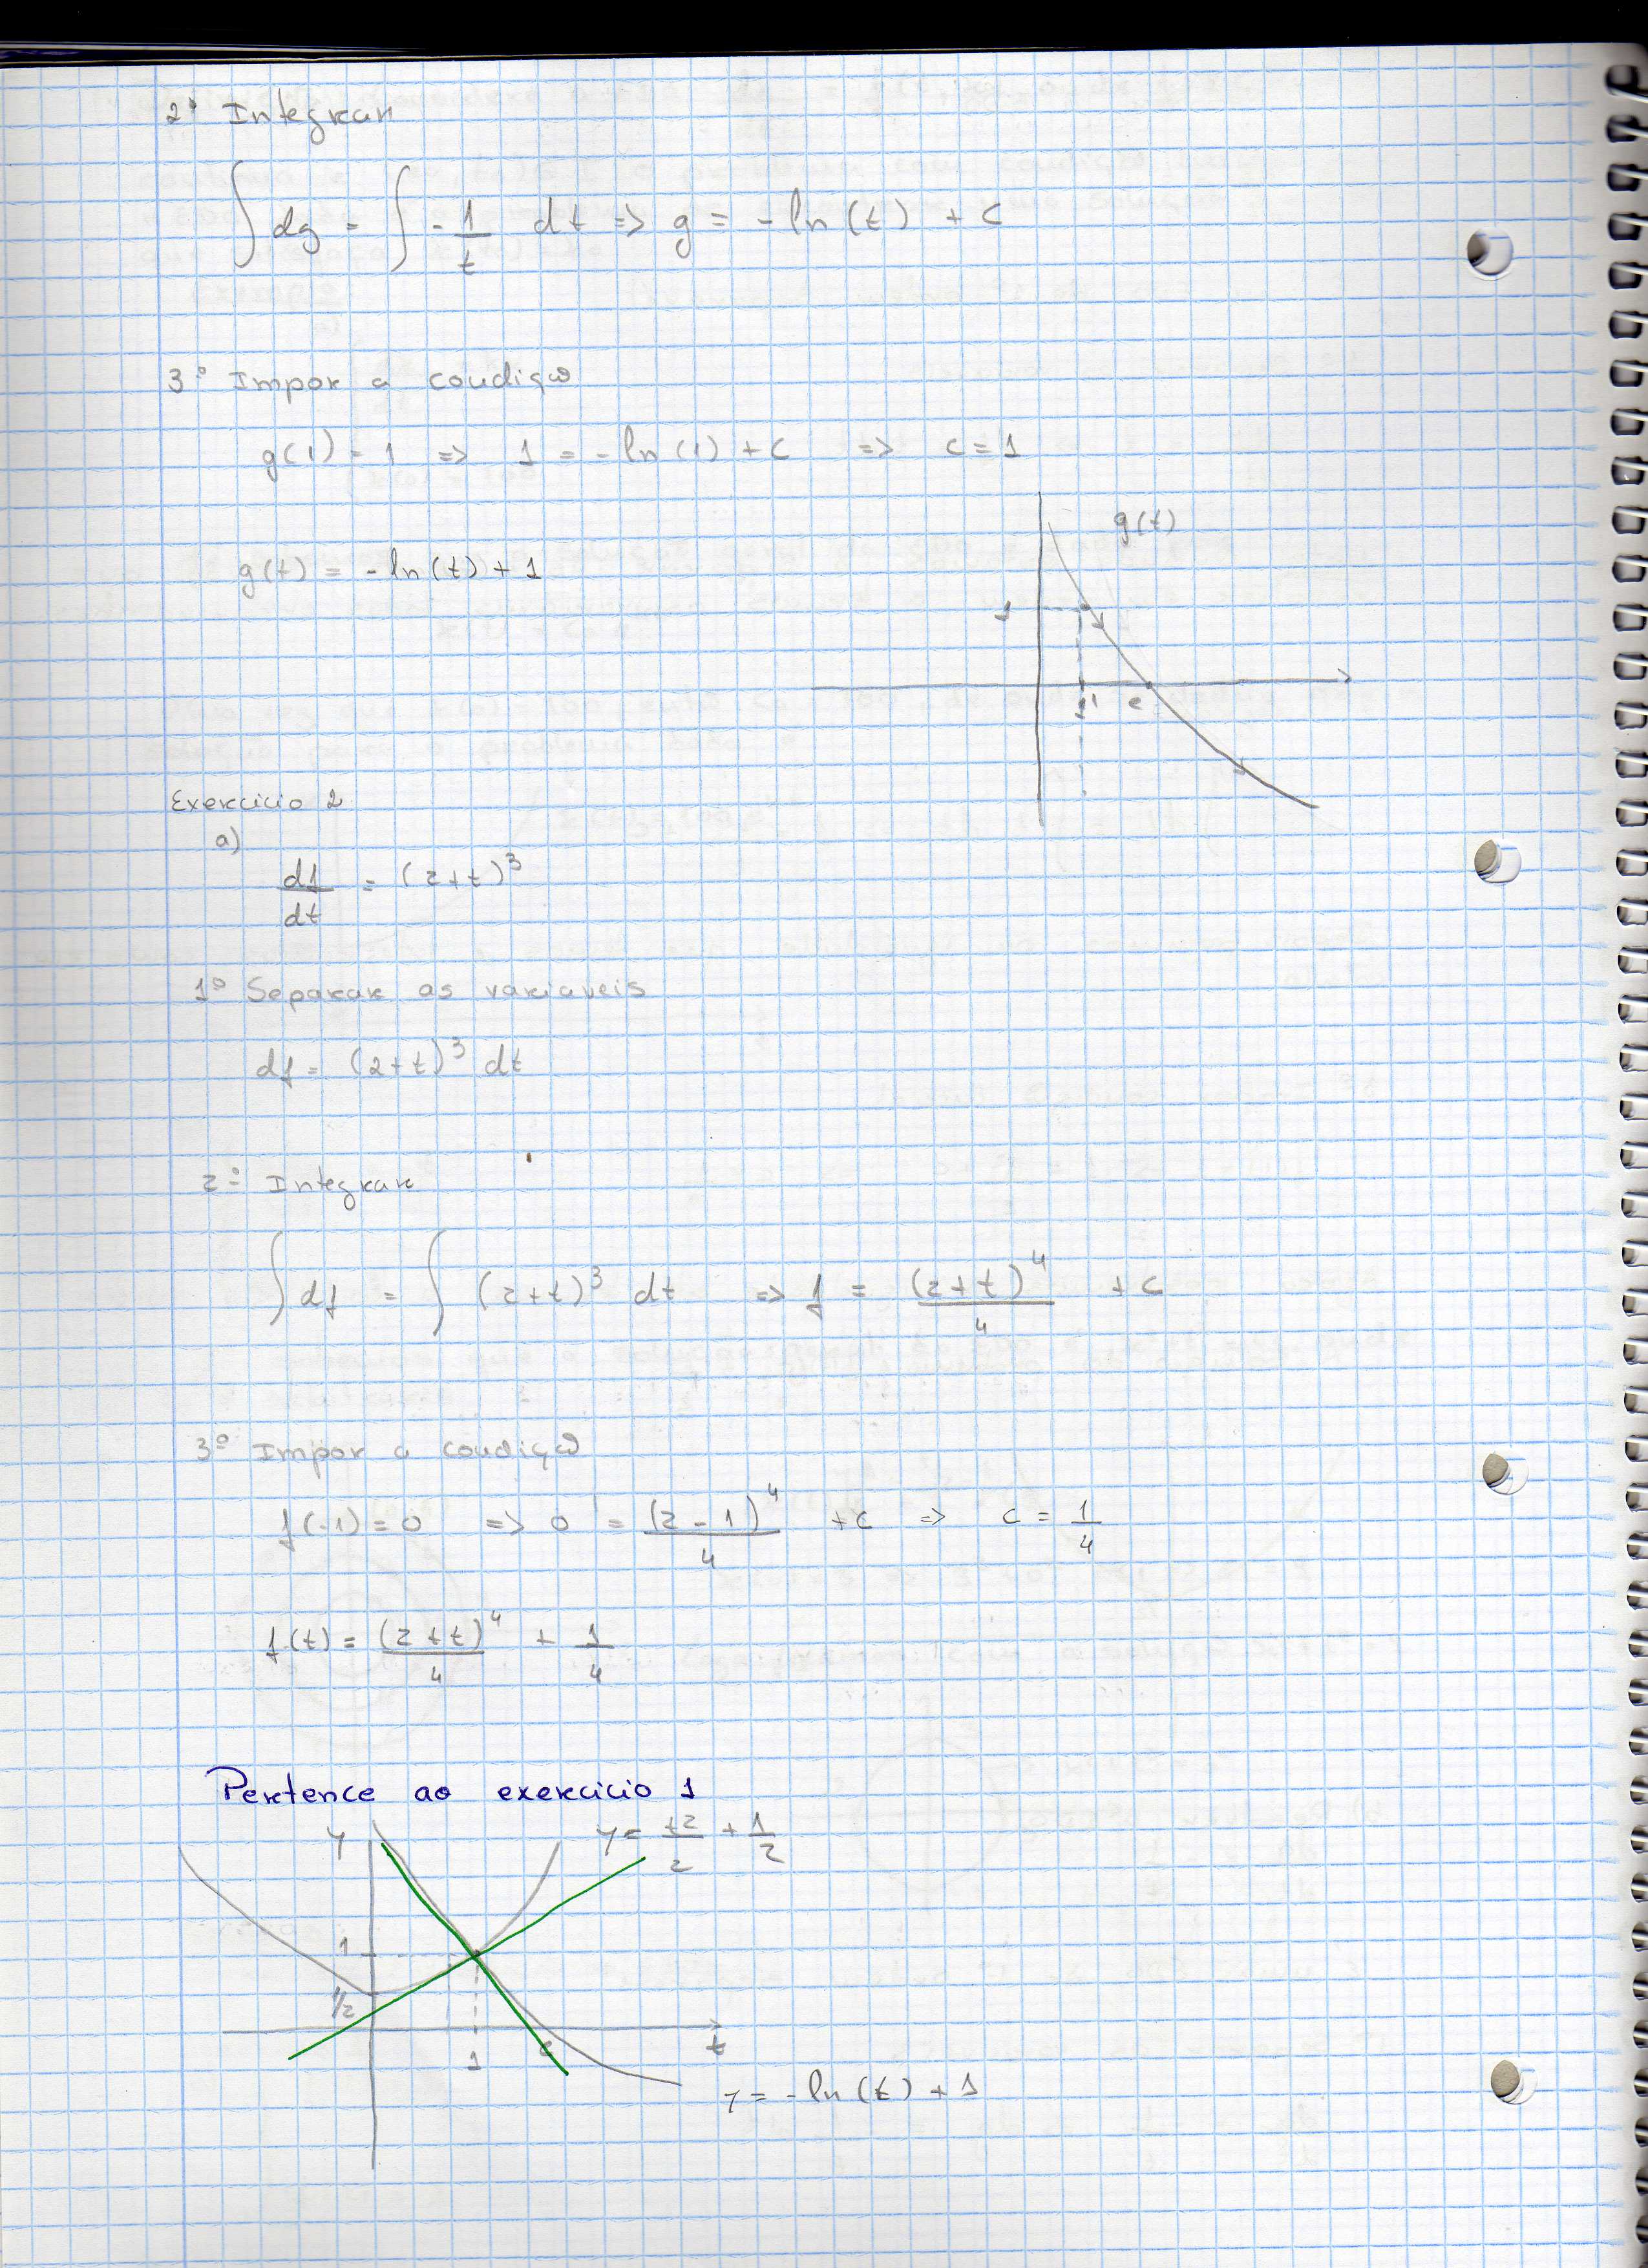 2º Integrar
∫ dg = ∫ - 1/t dt => g = -ln(t) + c
3º Impor a condição
g(1) = 1 => 1 = -ln(1) + c => c = 1
g(t)
g(t) = -ln(t) + 1
1
1 e
Exercicio 2
a)
df/dt = (2+t)^3
1º Separar as variaveis
df = (2+t)^3 dt
2º Integrar
∫ df = ∫ (2+t)^3 dt => f = (2+t)^4/4 + c
3º Impor a condição
f(-1) = 0 => 0 = (2-1)^4/4 + c => c = 1/4
f(t) = (2+t)^4/4 + 1/4
Pertence ao exercicio 1
y
y = t^2/2 + 1/2
1
1/2
1 e t
y = -ln(t) + 1